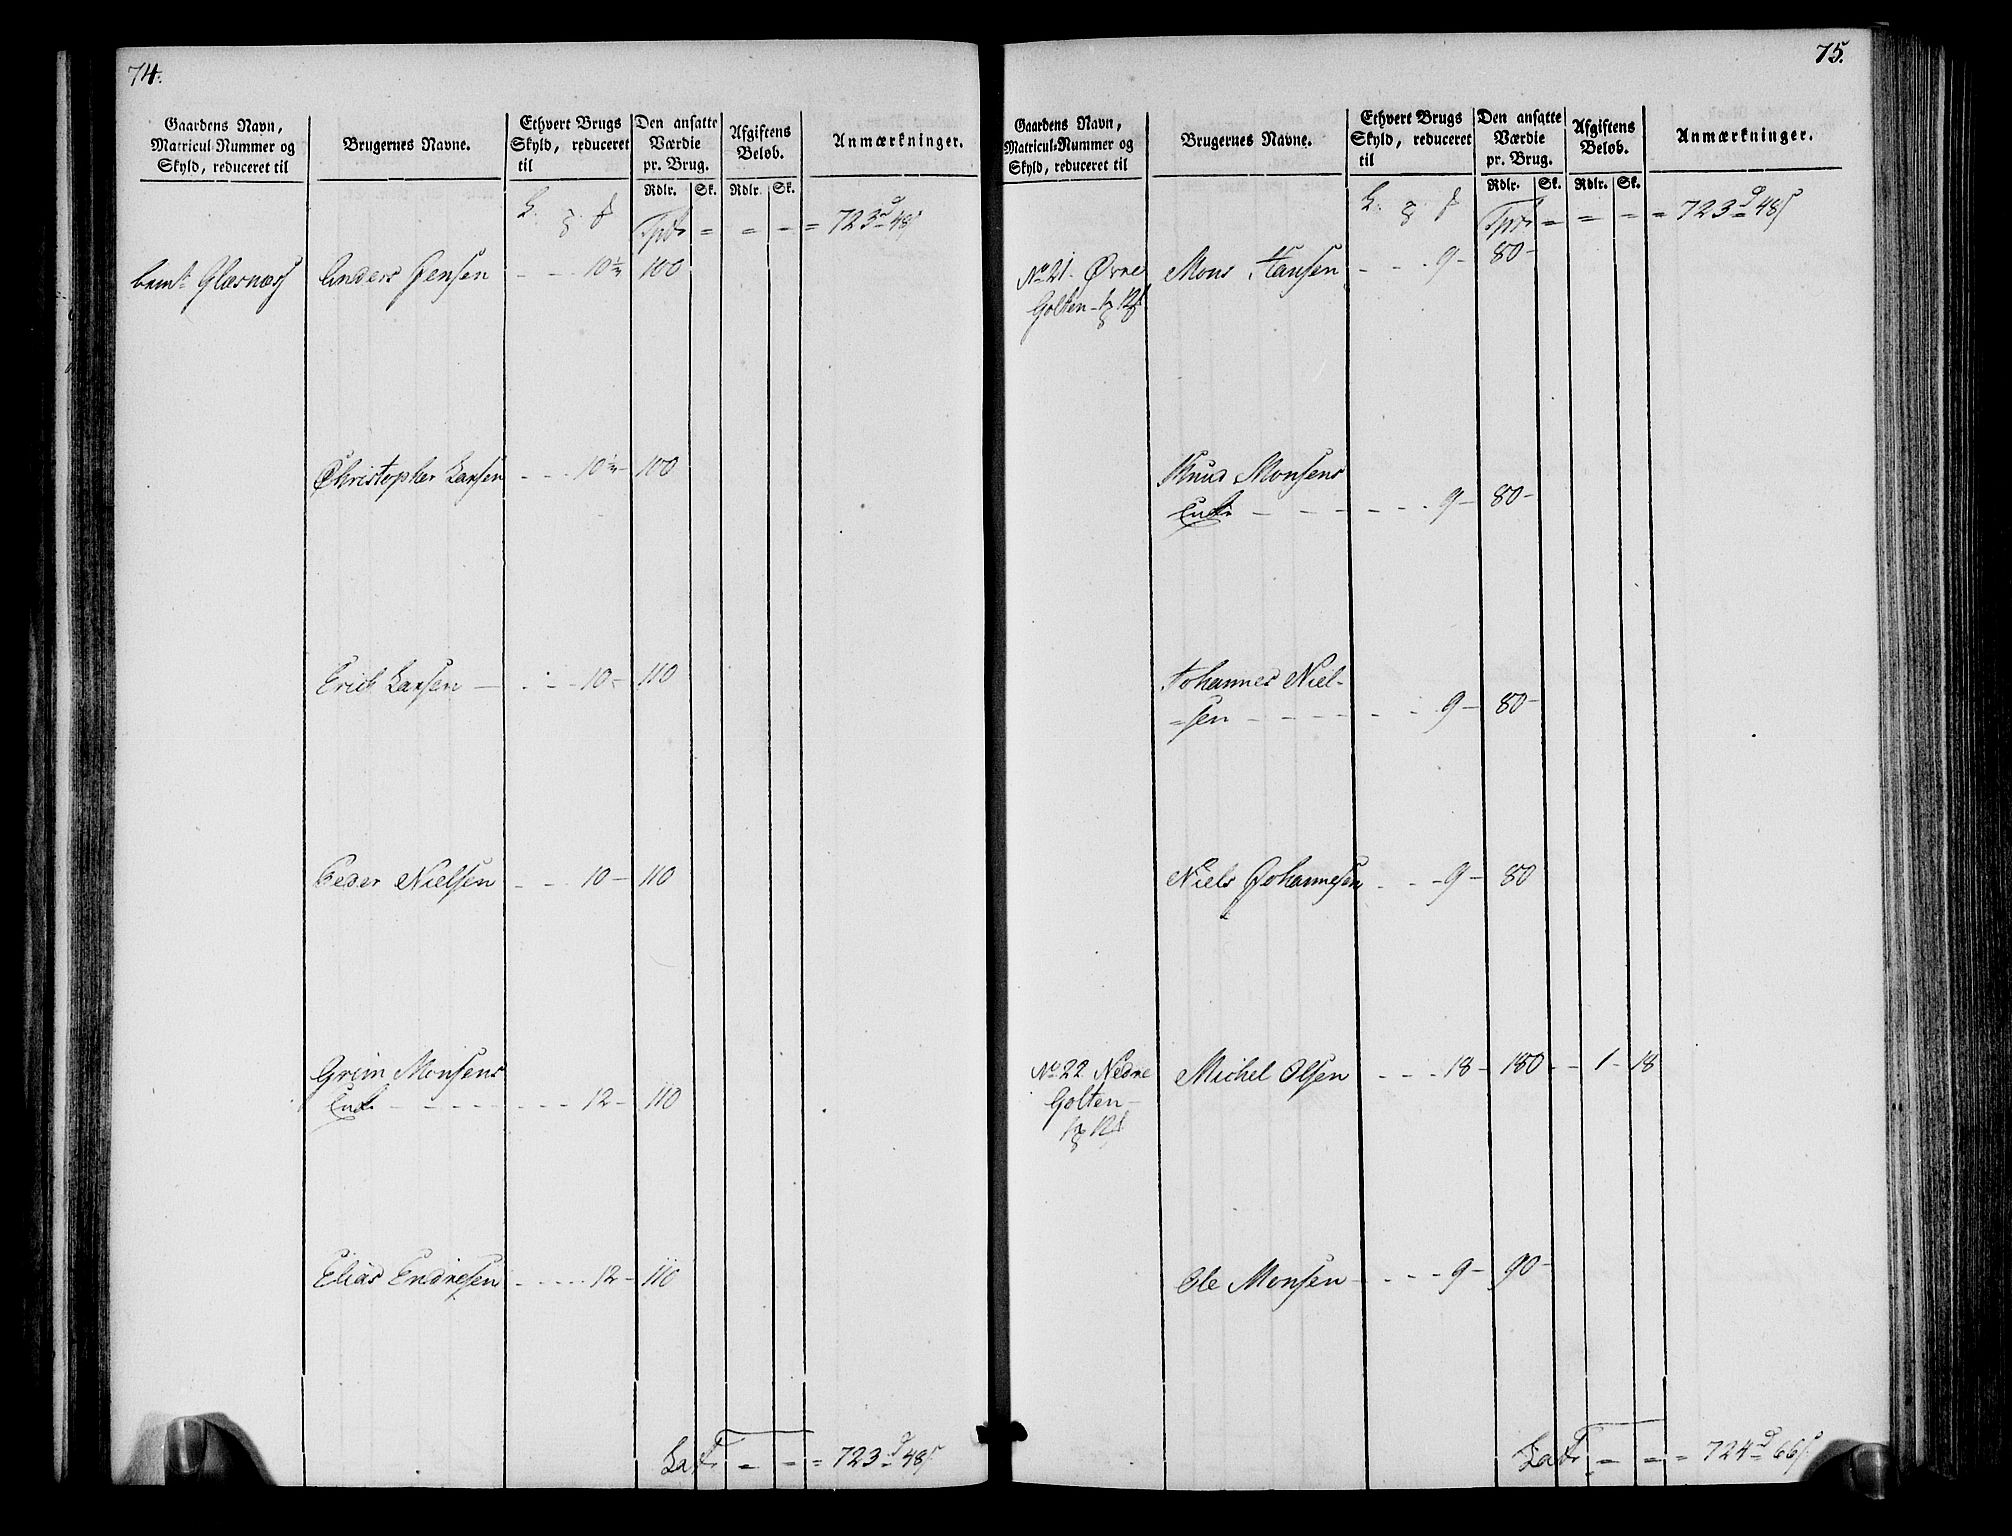 74.
Gaardens Navn,
Matricul-Nummer og
Skyld, reduceret til
Brugernes Navne.
Ethvert Brugs
Skyld, reduceret
til
Den ansatte
Værdie
pr. Brug.
Afgiftens
Beløb.
Anmærkninger.
Rdlr. Sk. Rdlr. Sk.
Tpt = = - = 723 d 48 s
Glæsnæss Anders Jensen - - - 10 ½ 100
Christopher Larsen - - - 10 ½ - 100
Erich Larsen - - - - 10 - 110
Peder Nielsen - - - 10 - 110
Grim Monsens
Enke - - - - - - - - 12 - 110
Elias Endresen - - - - - 12 - 110
LaT = - = 723 d 48 s
75.
Gaardens Navn,
Matricul-Nummer og
Skyld, reduceret til
Brugernes Navne.
Ethvert Brugs
Skyld, reduceret
til
Den ansatte
Værdie
pr. Brug.
Afgiftens
Beløb.
Anmærkninger.
Rdlr. Sk. Rdlr. Sk.
Tpt = = = = 723 d 48 s
No 21. Øvre Mons Hansen - - - 9 - 80 -
Golten - 1 12
Knud Monsens
Enke - - - - - - - 9 - 80 -
Johannes Niel-
=sen - - - - - - - 9 - 80 -
Niels Johannesen - - - 9 - 80
No 22 Nedre Michel Olsen - - - 18 - 180 - - 1 - 18
Golten -
1 12
Ole Monsen - - - - 9 - 90 -
LaT = = = 724 d 66 s